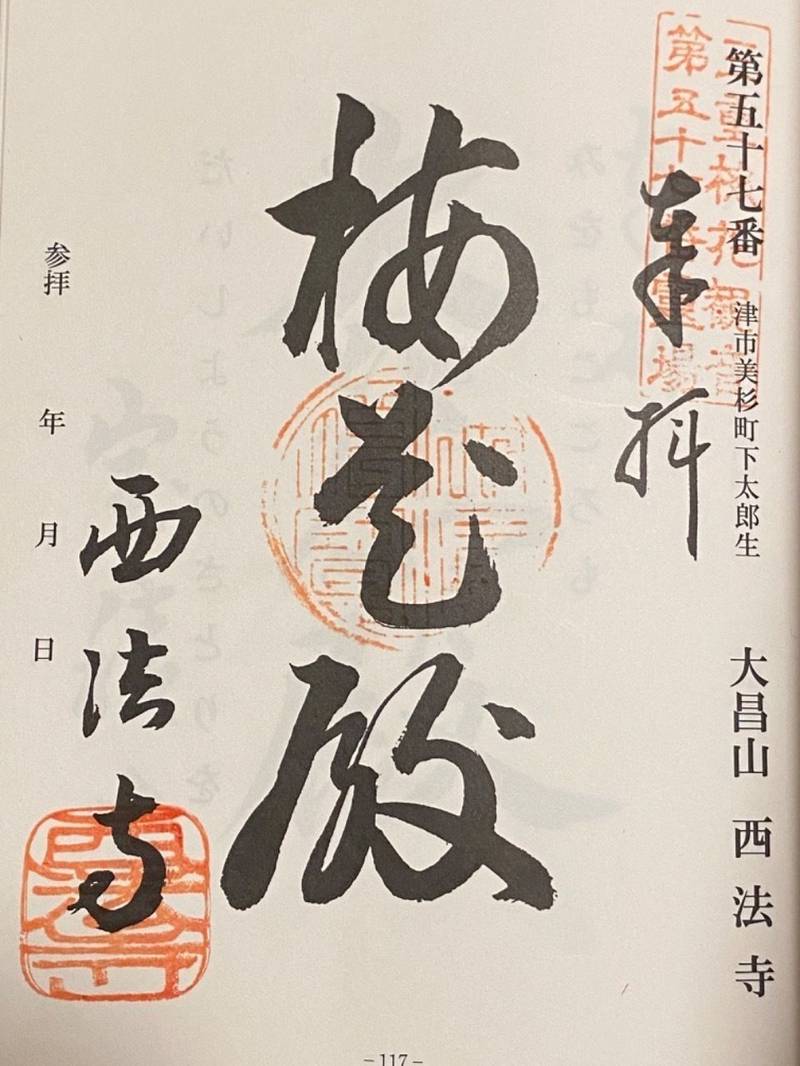 第五十七番 津市美杉町下太郎生 大昌山 西法寺
第五十七番霊場
奉拝
梅花殿
西法寺
参拝 年 月 日
－117－